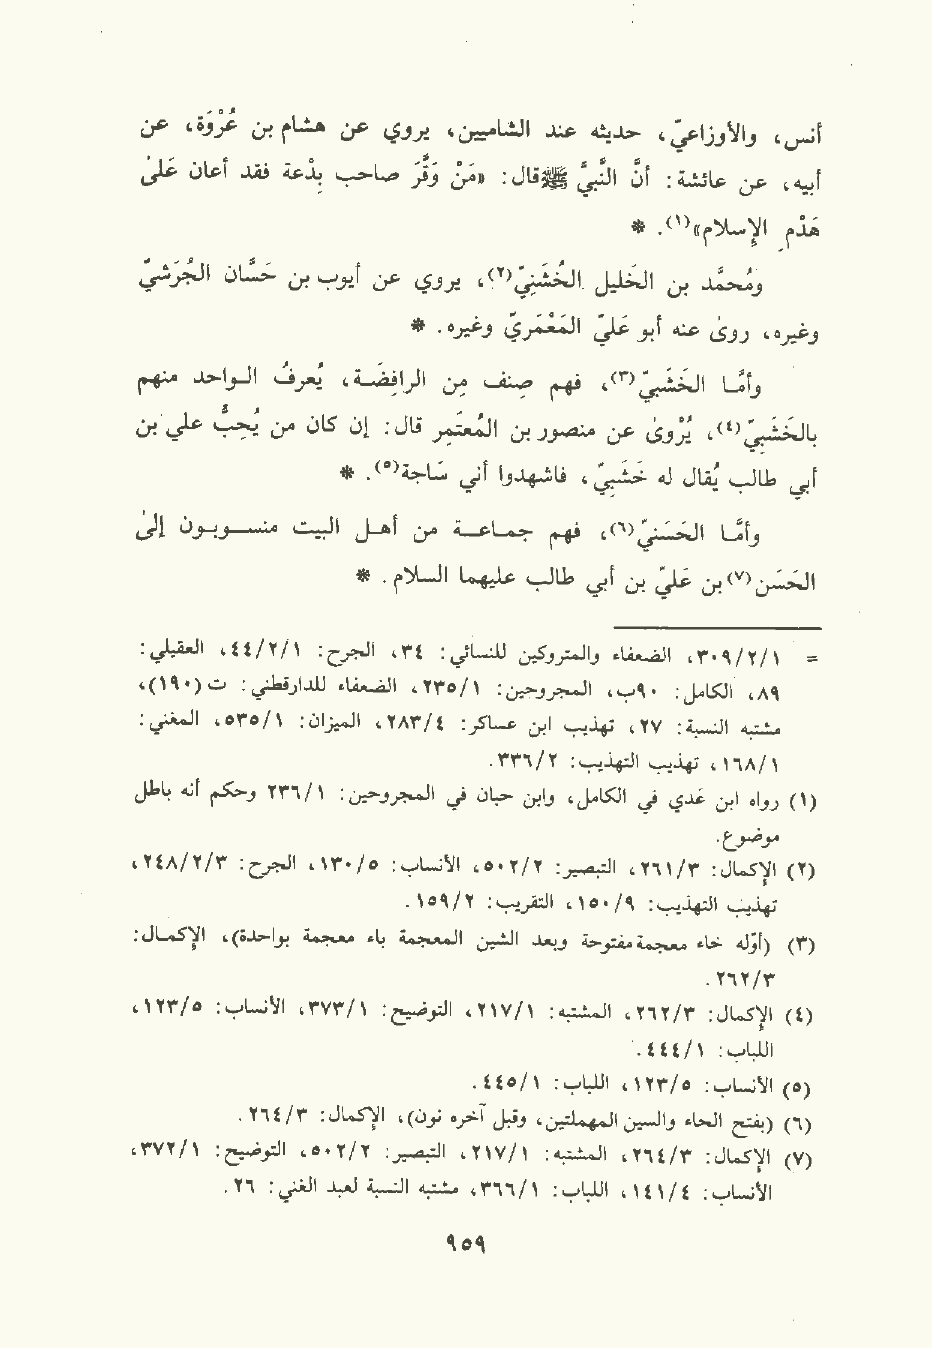 أنس، والأوزاعيّ، حديثه عند الشاميين، يروي عن هشام بن عُرْوَة، عن
أبيه، عن عائشة: أنَّ النبيَّ ﷺ قال: «مَنْ وَقَّرَ صاحب بِدْعة فقد أعان عَلىٰ
هَدْم الإِسلام»(١). *
ومُحمَّد بن الخَليل الخُشَنِيّ(٢)، يروي عن أيوب بن حَسَّان الجُرَشيّ
وغيره، روىٰ عنه أبو عَليّ المَعْمَريّ وغيره. *
وأمَّا الخَشَبيّ(٣)، فهم صِنف مِن الرافِضَة، يُعرفُ الواحد منهم
بالخَشَبِيّ(٤)، يُرْوىٰ عن منصور بن المُعتَمِر قال: إن كان من يُحِبُّ علي بن
أبي طالب يُقال له خَشَبِيّ، فاشهدوا أني سَاجة(٥). *
وأمَّا الحَسَنيّ(٦)، فهم جماعة من أهل البيت منسوبون إلىٰ
الحَسَن(٧) بن عَليّ بن أبي طالب عليهما السلام. *
= ٣٠٩/٢/١، الضعفاء والمتروكين للنسائي: ٣٤، الجرح: ٤٤/٢/١، العقيلي:
٨٩، الكامل: ٩٠ب، المجروحين: ٢٣٥/١، الضعفاء للدارقطني: ت(١٩٠)،
مشتبه النسبة: ٢٧، تهذيب ابن عساكر: ٢٨٣/٤، الميزان: ٥٣٥/١، المغني:
١٦٨/١، تهذيب التهذيب: ٣٣٦/٢.
(١) رواه ابن عَدي في الكامل، وابن حبان في المجروحين: ٢٣٦/١ وحكم أنه باطل
موضوع.
(٢) الإِكمال: ٢٦١/٣، التبصير: ٥٠٢/٢، الأنساب: ١٣٠/٥، الجرح: ٢٤٨/٢/٣،
تهذيب التهذيب: ١٥٠/٩، التقريب: ١٥٩/٢.
(٣) (أوّله خاء معجمة مفتوحة وبعد الشين المعجمة باء معجمة بواحدة)، الإكمال:
٢٦٢/٣.
(٤) الإِكمال: ٢٦٢/٣، المشتبه: ٢١٧/١، التوضيح: ٣٧٣/١، الأنساب: ١٢٣/٥،
اللباب: ٤٤٤/١.
(٥) الأنساب: ١٢٣/٥، اللباب: ٤٤٥/١.
(٦) (بفتح الحاء والسين المهملتين، وقبل آخره نون)، الإكمال: ٢٦٤/٣.
(٧) الإِكمال: ٢٦٤/٣، المشتبه: ٢١٧/١، التبصير: ٥٠٢/٢، التوضيح: ٣٧٢/١،
الأنساب: ١٤١/٤، اللباب: ٣٦٦/١، مشتبه النسبة لعبد الغني: ٢٦.
٩٥٩